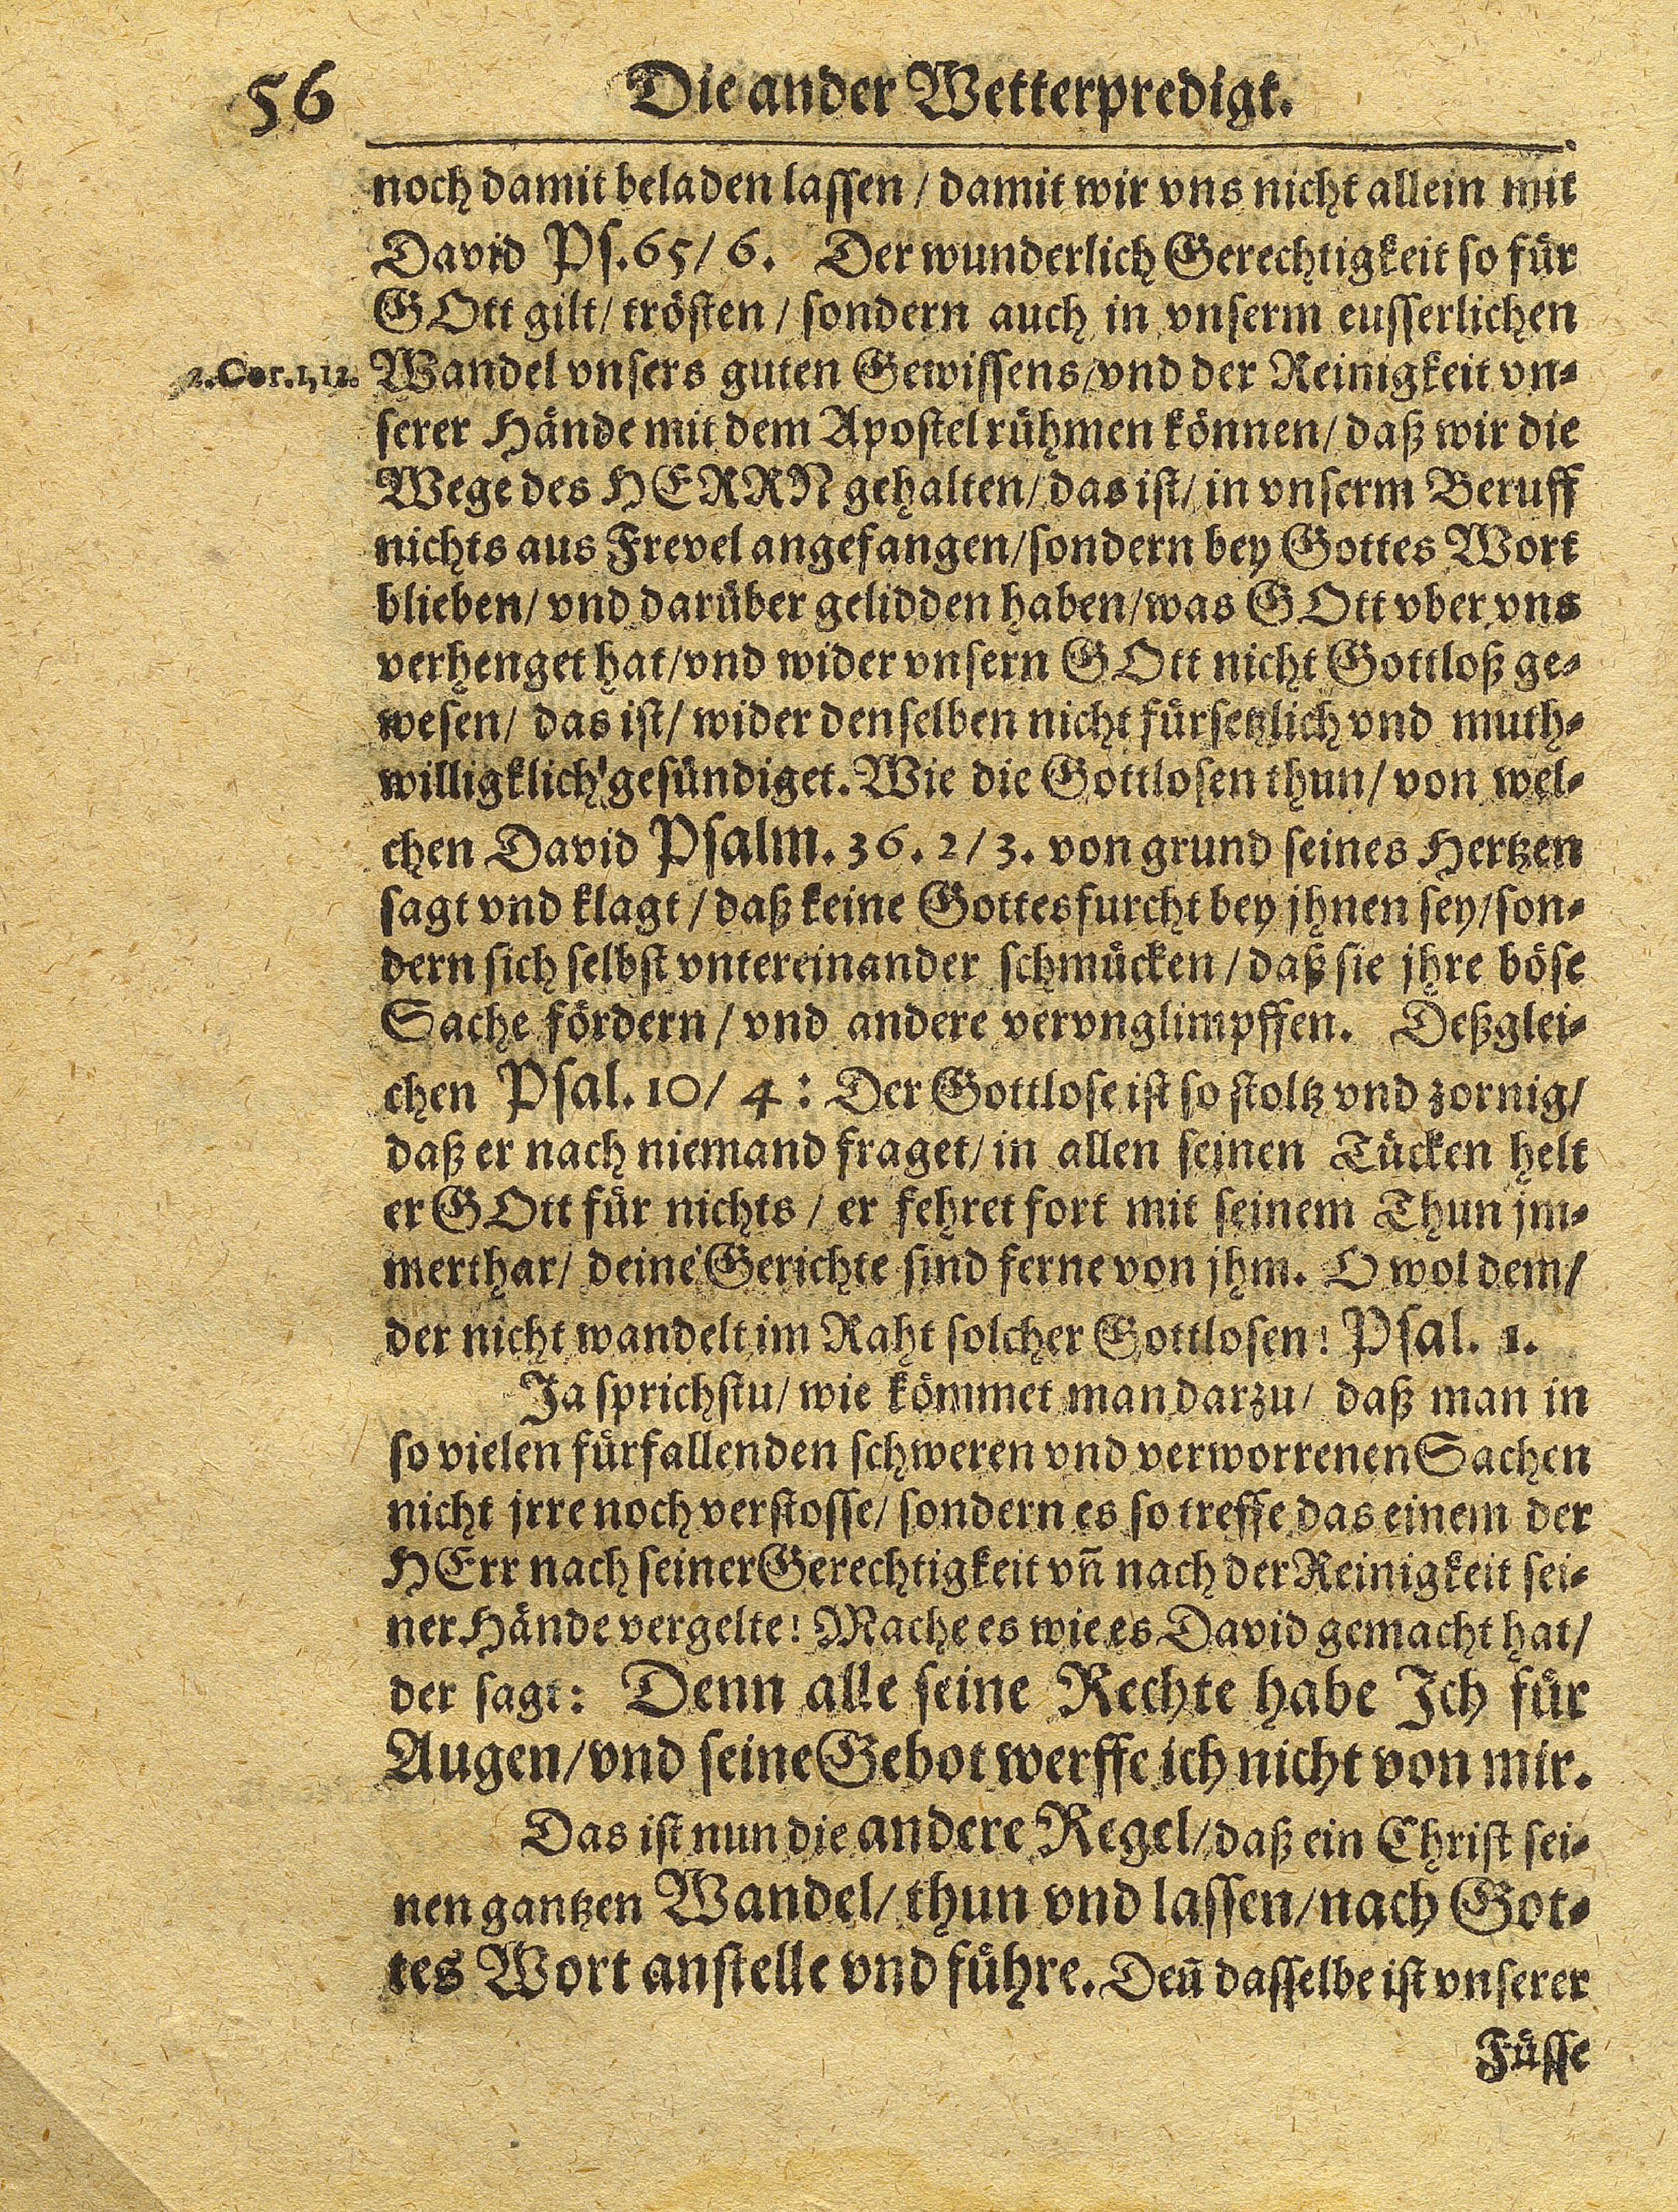 56
Die ander Wetterpredigt.
noch damit beladen lassen / damit wir vns nicht allein mit
David Ps. 65/ 6. Der wunderlich Gerechtigkeit so für
GOtt gilt/ trösten / sondern auch in vnserm eusserlichen
2. Cor. 1, 12.
Wandel vnsers guten Gewissens/vnd der Reinigkeit vn-
serer Hände mit dem Apostel rühmen können/ daß wir die
Wege des HERRN gehalten/ das ist/ in vnserm Beruff
nichts aus Frevel angefangen/sondern bey Gottes Wort
blieben/ vnd darüber gelidden haben/was GOtt vber vns
verhenget hat/vnd wider vnsern GOtt nicht Gottloß ge-
wesen/ das ist/ wider denselben nicht fürsetzlich vnd muth-
willigklich gesündiget. Wie die Gottlosen thun/ von wel-
chen David Psalm. 36. 2/ 3. von grund seines Hertzen
sagt vnd klagt / daß keine Gottesfurcht bey jhnen sey/son-
dern sich selbst vntereinander schmücken / daß sie jhre böse
Sache fördern / vnd andere vervnglimpffen. Deßglei-
chen Psal. 10/ 4: Der Gottlose ist so stoltz vnd zornig/
daß er nach niemand fraget/ in allen seinen Tücken helt
er GOtt für nichts / er fehret fort mit seinem Thun jm-
merthar/ deine Gerichte sind ferne von jhm. O wol dem/
der nicht wandelt im Raht solcher Gottlosen! Psal. 1.
Ja sprichstu/ wie kömmet man darzu/ daß man in
so vielen fürfallenden schweren vnd verworrenen Sachen
nicht jrre noch verstosse/ sondern es so treffe das einem der
HErr nach seiner Gerechtigkeit vn̄ nach der Reinigkeit sei-
ner Hände vergelte! Mache es wie es David gemacht hat/
der sagt: Denn alle seine Rechte habe Ich für
Augen/vnd seine Gebot werffe ich nicht von mir.
Das ist nun die andere Regel/daß ein Christ sei-
nen gantzen Wandel/ thun vnd lassen/nach Got-
tes Wort anstelle vnd führe. Den̄ dasselbe ist vnserer
Füsse